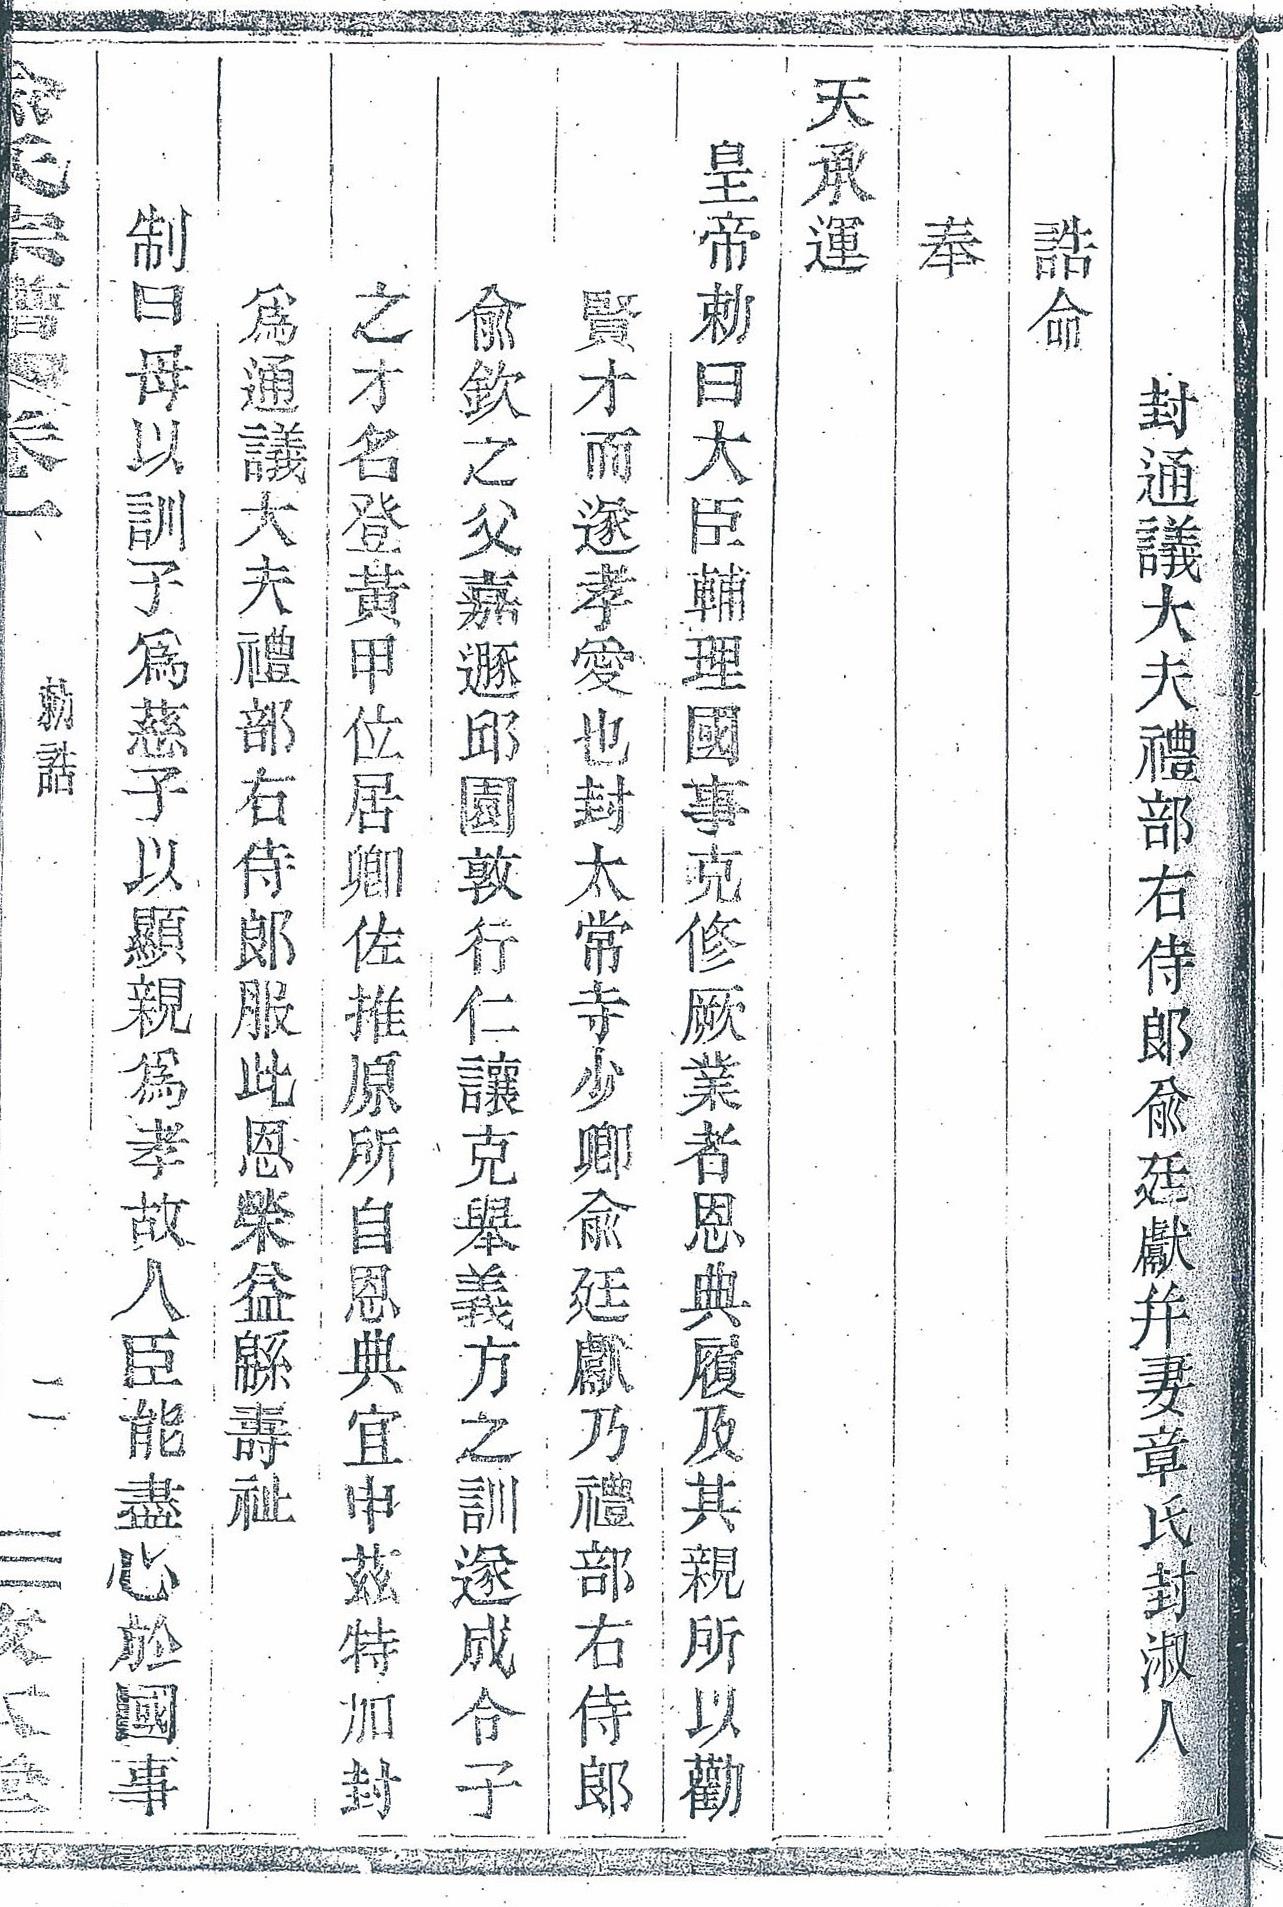 封通議大夫禮部右侍郎俞廷獻并妻章氏封淑人
誥命
奉
天承運
皇帝勅曰大臣輔理國事克修厥業者恩典履及其親所以勸
賢才而遂孝愛也封太常寺少卿俞廷獻乃禮部右侍郎
俞欽之父嘉遯邱園敦行仁讓克舉義方之訓遂成令子
之才名登黃甲位居卿佐推原所自恩典宜申茲特加封
為通議大夫禮部右侍郎服此恩榮益緜壽祉
制曰母以訓子為慈子以顯親為孝故人臣能盡心於國事
俞氏宗譜 卷一 勅誥 二